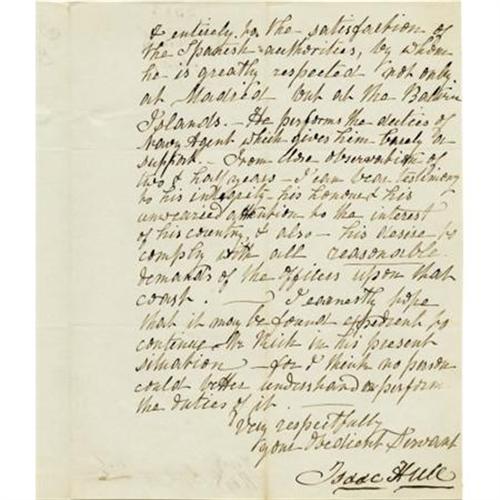 & entirely to the satisfaction of
the Spanish authorities, by whom
he is greatly respected not only
at Madrid but at the
Islands. – He performs the duties of
Navy Agent which gives him barely a
support. – From close observation of
two & half years – I can bear testimony
to his integrity – his honour & his
unwearied attention to the interest
of his country, & also – his desire to
comply with all reasonable
demands of the Officers upon that
coast. – I earnestly hope
that it may be found expedient to
continue Mr in his present
situation – for I think no person
could better understand or perform
the duties of it.
Very respectfully
your Obedient Servant
Isaac Hull